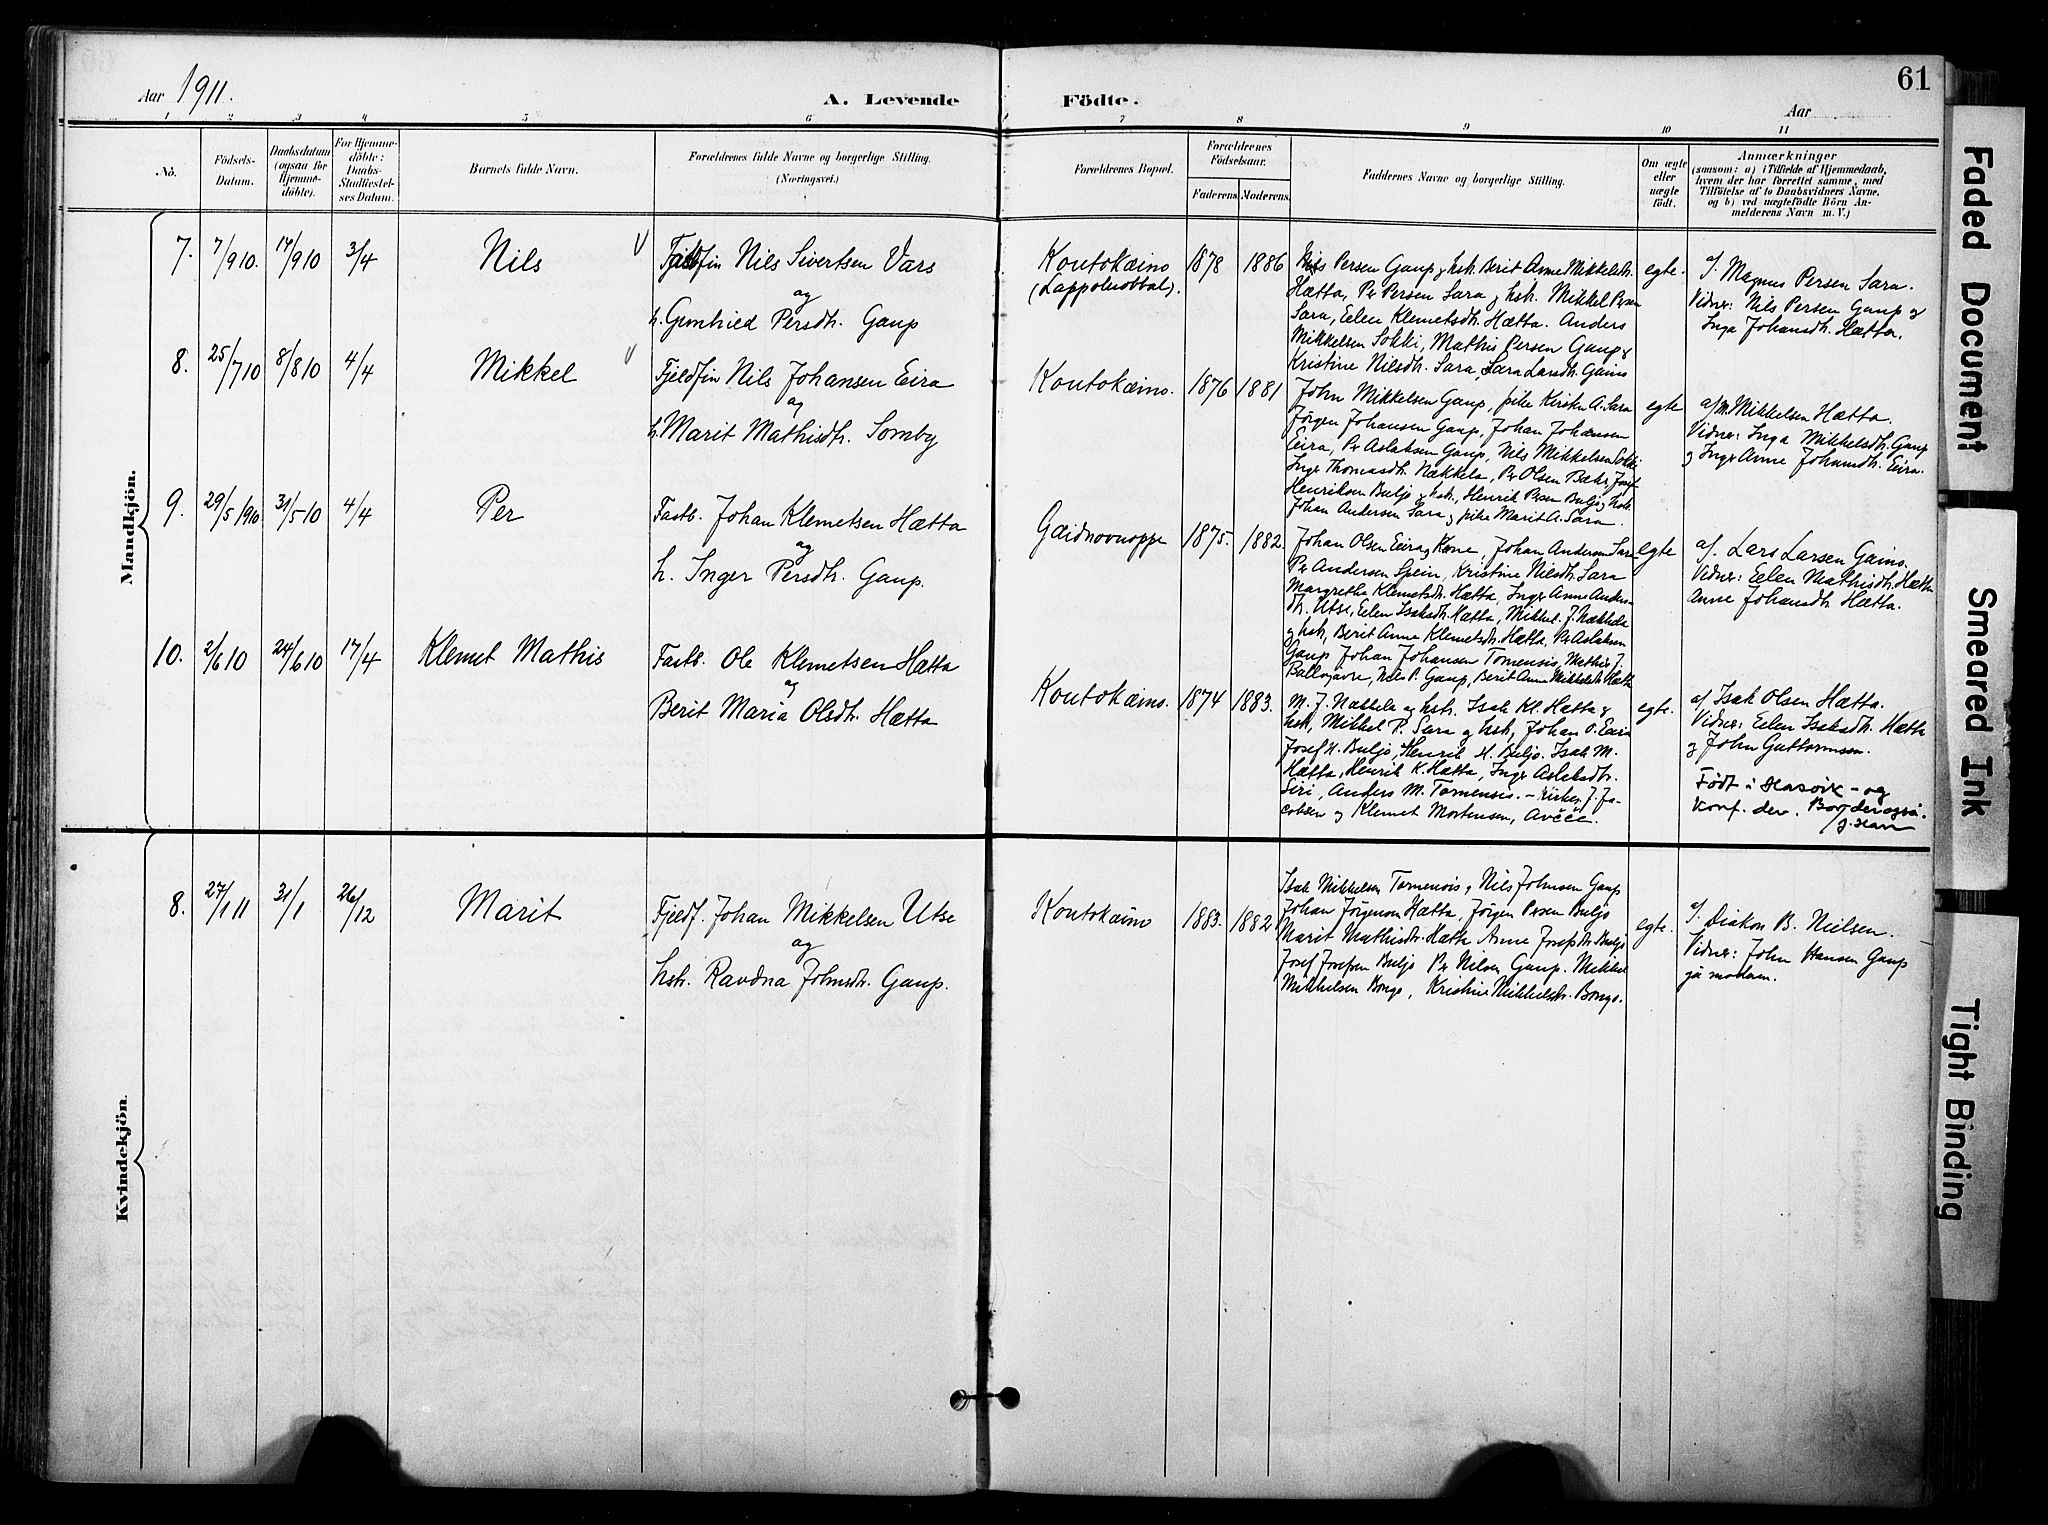 61
Aar 1911.
A. Levende
Födte.
Aar
1 2 3 4 5 6 7 8 9 10 11
No.
Födsels-
Datum.
Daabsdatum
(ogsaa for
Hjemme-
döbte).
For Hjemme-
döbte:
Daabs-
Stadfæstel-
ses Datum.
Barnets fulde Navn.
Forældrenes fulde Navne og borgerlige Stilling.
(Næringsvei.)
Forældrenes Bopæl.
Forældrenes
Födselsaar.
Faderens
Moderens
Faddernes Navne og borgerlige Stilling.
Om ægte
eller
uægte
födt.
Anmærkninger
(saasom: a) i Tilfælde af Hjemmedaab,
hvem der har forrettet samme, med
Tilföielse af to Daabsvidners Navne,
og b) ved uægtefödte Börn An-
melderens Navn m. V.)
Mandkjön.
7.
7/9 10.
17/9 10
3/4
Nils
V
Fjeldfin Nils Sivertsen Vars
og
h. Gunhild Persdtr. Gaup
Koutokæino
(Lappoluobbal).
1878
1886
Nils Persen Gaup og hstr. Berit Anne Mikkelsdtr.
Hætta, Per Persen Sara og hstr. Mikkel Persen
Sara, Eelen Klemetsdtr. Hætta. Anders
Mikkelsen Sokki, Mathis Persen Gaup og
Kristine Nilsdtr. Sara, Sara Larsdtr. Gains
egte.
af. Magnus Persen Sara.
Vidner: Nils Persen Gaup og
Inga Johansdtr. Hætta.
8.
25/7 10
8/8 10
4/4
Mikkel
V
Fjeldfin Nils Johansen Eira
og
h. Marit Mathisdtr. Somby
Koutokæino.
1876
1881
John Mikkelsen Gaup, pike Kirsten A. Sara
Jørgen Johansen Gaup, Johan Johansen
Eira, Per Aslaksen Gaup, Nils Mikkelsen Sokki
Inger Thomasdtr. Nækkela, Per Olsen Bæhr, Josef
Henriksen Buljo og hstr., Henrik Persen Buljo og hstr.
Johan Andersen Sara og pike Marit A. Sara.
egte
af M. Mikkelsen Hætta.
Vidner: Inga Mikkelsdtr. Gaup
og Inger Anne Johansdtr. Eira.
9.
29/5 1910
31/5 10
4/4
Per
Fastb. Johan Klemetsen Hætta
og
h. Inger Persdtr. Gaup.
Gæidnovuoppe
1875.
1882.
Johan Olsen Eira og Kone, Johan Andersen Sara
Per Andersen Spein, Kristine Nilsdtr. Sara
Margrethe Klemetsdtr. Hætta, Inger Anne Anders-
dtr. Utse, Eelen Isaksdtr. Hætta, Mikkel J. Nækkela
og hstr., Berit Anne Klemetsdtr. Hætta, Per Aslaksen
Gaup Johan Johansen Tornensis, Mathis J.
Ballojavre, Nils P. Gaup, Berit Anne Mikkelsdtr. Hætta
egte
af. Lars Larsen Gains.
Vidner: Eelen Mathisdtr. Hætta
Anne Johansdtr. Hætta.
10.
2/6 10
24/6 10
17/4
Klemet Mathis
Fastb. Ole Klemetsen Hætta
og
Berit Maria Olsdtr. Hætta
Koutokæino.
1874
1883.
M. J. Nækkela og hstr. Isak Kl. Hætta og
hstr, Mikkel P. Sara og hstr, Johan O. Eira
Josef H. Buljo, Henrik H. Buljo. Isak M.
Hætta, Henrik K. Hætta, Inger Aslaksdtr.
Siri, Anders M. Tornensis. – Kirkes. J. Ja-
cobsen og Klemet Mortensen, Avčče.
egte.
af Isak Olsen Hætta.
Vidner: Eelen Isaksdtr. Hætta
og John Guttormsen.
Født i Hasvik – og
Konf. der. Bor der også.
Kvindekjön.
8.
27/1 11
31/1
26/12
Marit
Fjeldf. Johan Mikkelsen Utse
og
hstr. Ravdna Johnsdtr. Gaup.
Koutokæino
1883.
1882
Isak Mikkelsen Tornensis, Nils Johnsen Gaup
Johan Jörgensen Hætta, Jörgen Persen Buljo
Marit Mathisdtr. Hætta Anne Josefsdtr. Buljo
Josef Josefsen Buljo Per Nilsen Gaup. Mikkel
Mikkelsen Bongo, Kristine Mikkelsdtr. Bongo.
egte.
af. Diakon B. Nielsen.
Vidner: John Hansen Gaup
Faded Document
Smeared Ink
Tight Binding